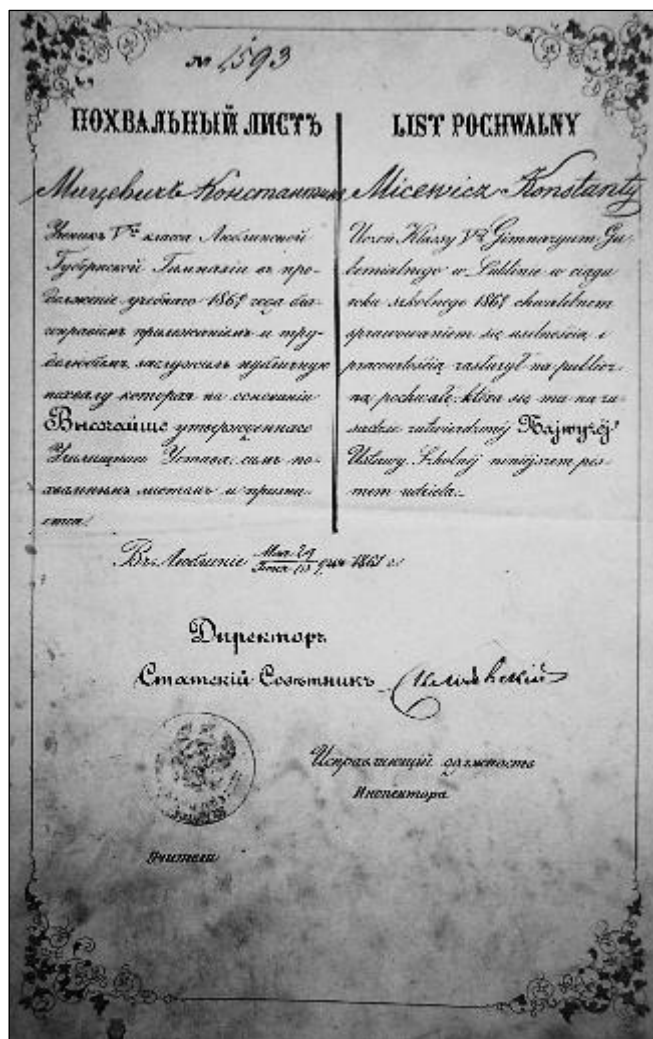 № 1593
ПОХВАЛЬНЫЙ ЛИСТЪ
Мицевичъ Константинъ
Ученикъ Vго класса Люблинской
Губернской Гимназіи въ про-
долженіе учебнаго года
прилежаніемъ и тру-
долюбіемъ заслужилъ публичную
похвалу которая на основаніи
Высочайше утвержденнаго
Училищнаго Устава, симъ по-
хвальнымъ листомъ и призна-
ется.
LIST POCHWALNY
Micewicz Konstanty
Uczeń Klassy Vej Gimnazyum Gu-
bernialnego w Lublinie w ciągu
roku szkolnego chwalebnem
sprawowaniem się usilnością i
pracowitością zasłużył na publicz-
ną pochwałę, która się mu na za-
sadzie zatwierdzonej Najwyżéj
Ustawy Szkolnéj niniejszem pis-
mem udziela.
Въ Люблинѣ Мая 29 дня
Директоръ
Статскій Совѣтникъ
Исправляющій должность
Инспектора
Учители